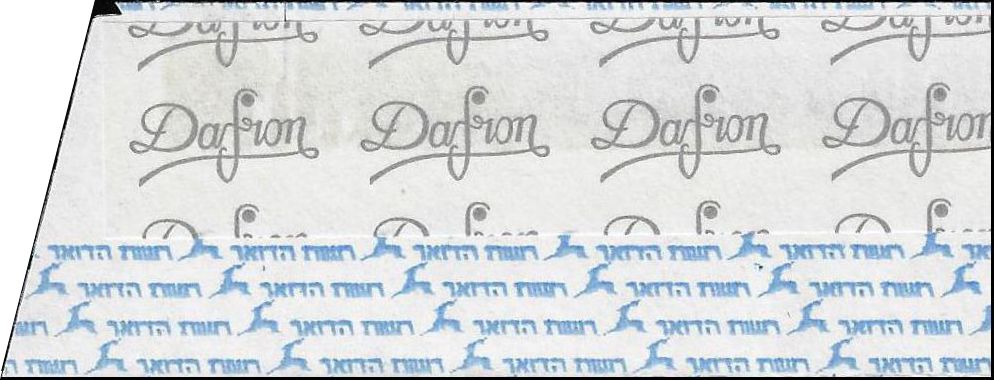 Dafron Dafron Dafron Dafron
רשות הדואר רשות הדואר רשות הדואר רשות הדואר רשות הדואר
רשות הדואר רשות הדואר רשות הדואר רשות הדואר רשות הדואר
רשות הדואר רשות הדואר רשות הדואר רשות הדואר רשות הדואר
רשות הדואר רשות הדואר רשות הדואר רשות הדואר רשות הדואר